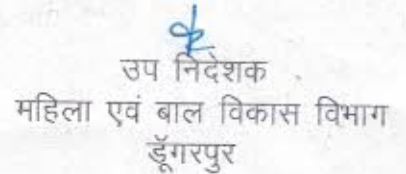 उप निदेशक
महिला एवं बाल विकास विभाग
डूँगरपुर